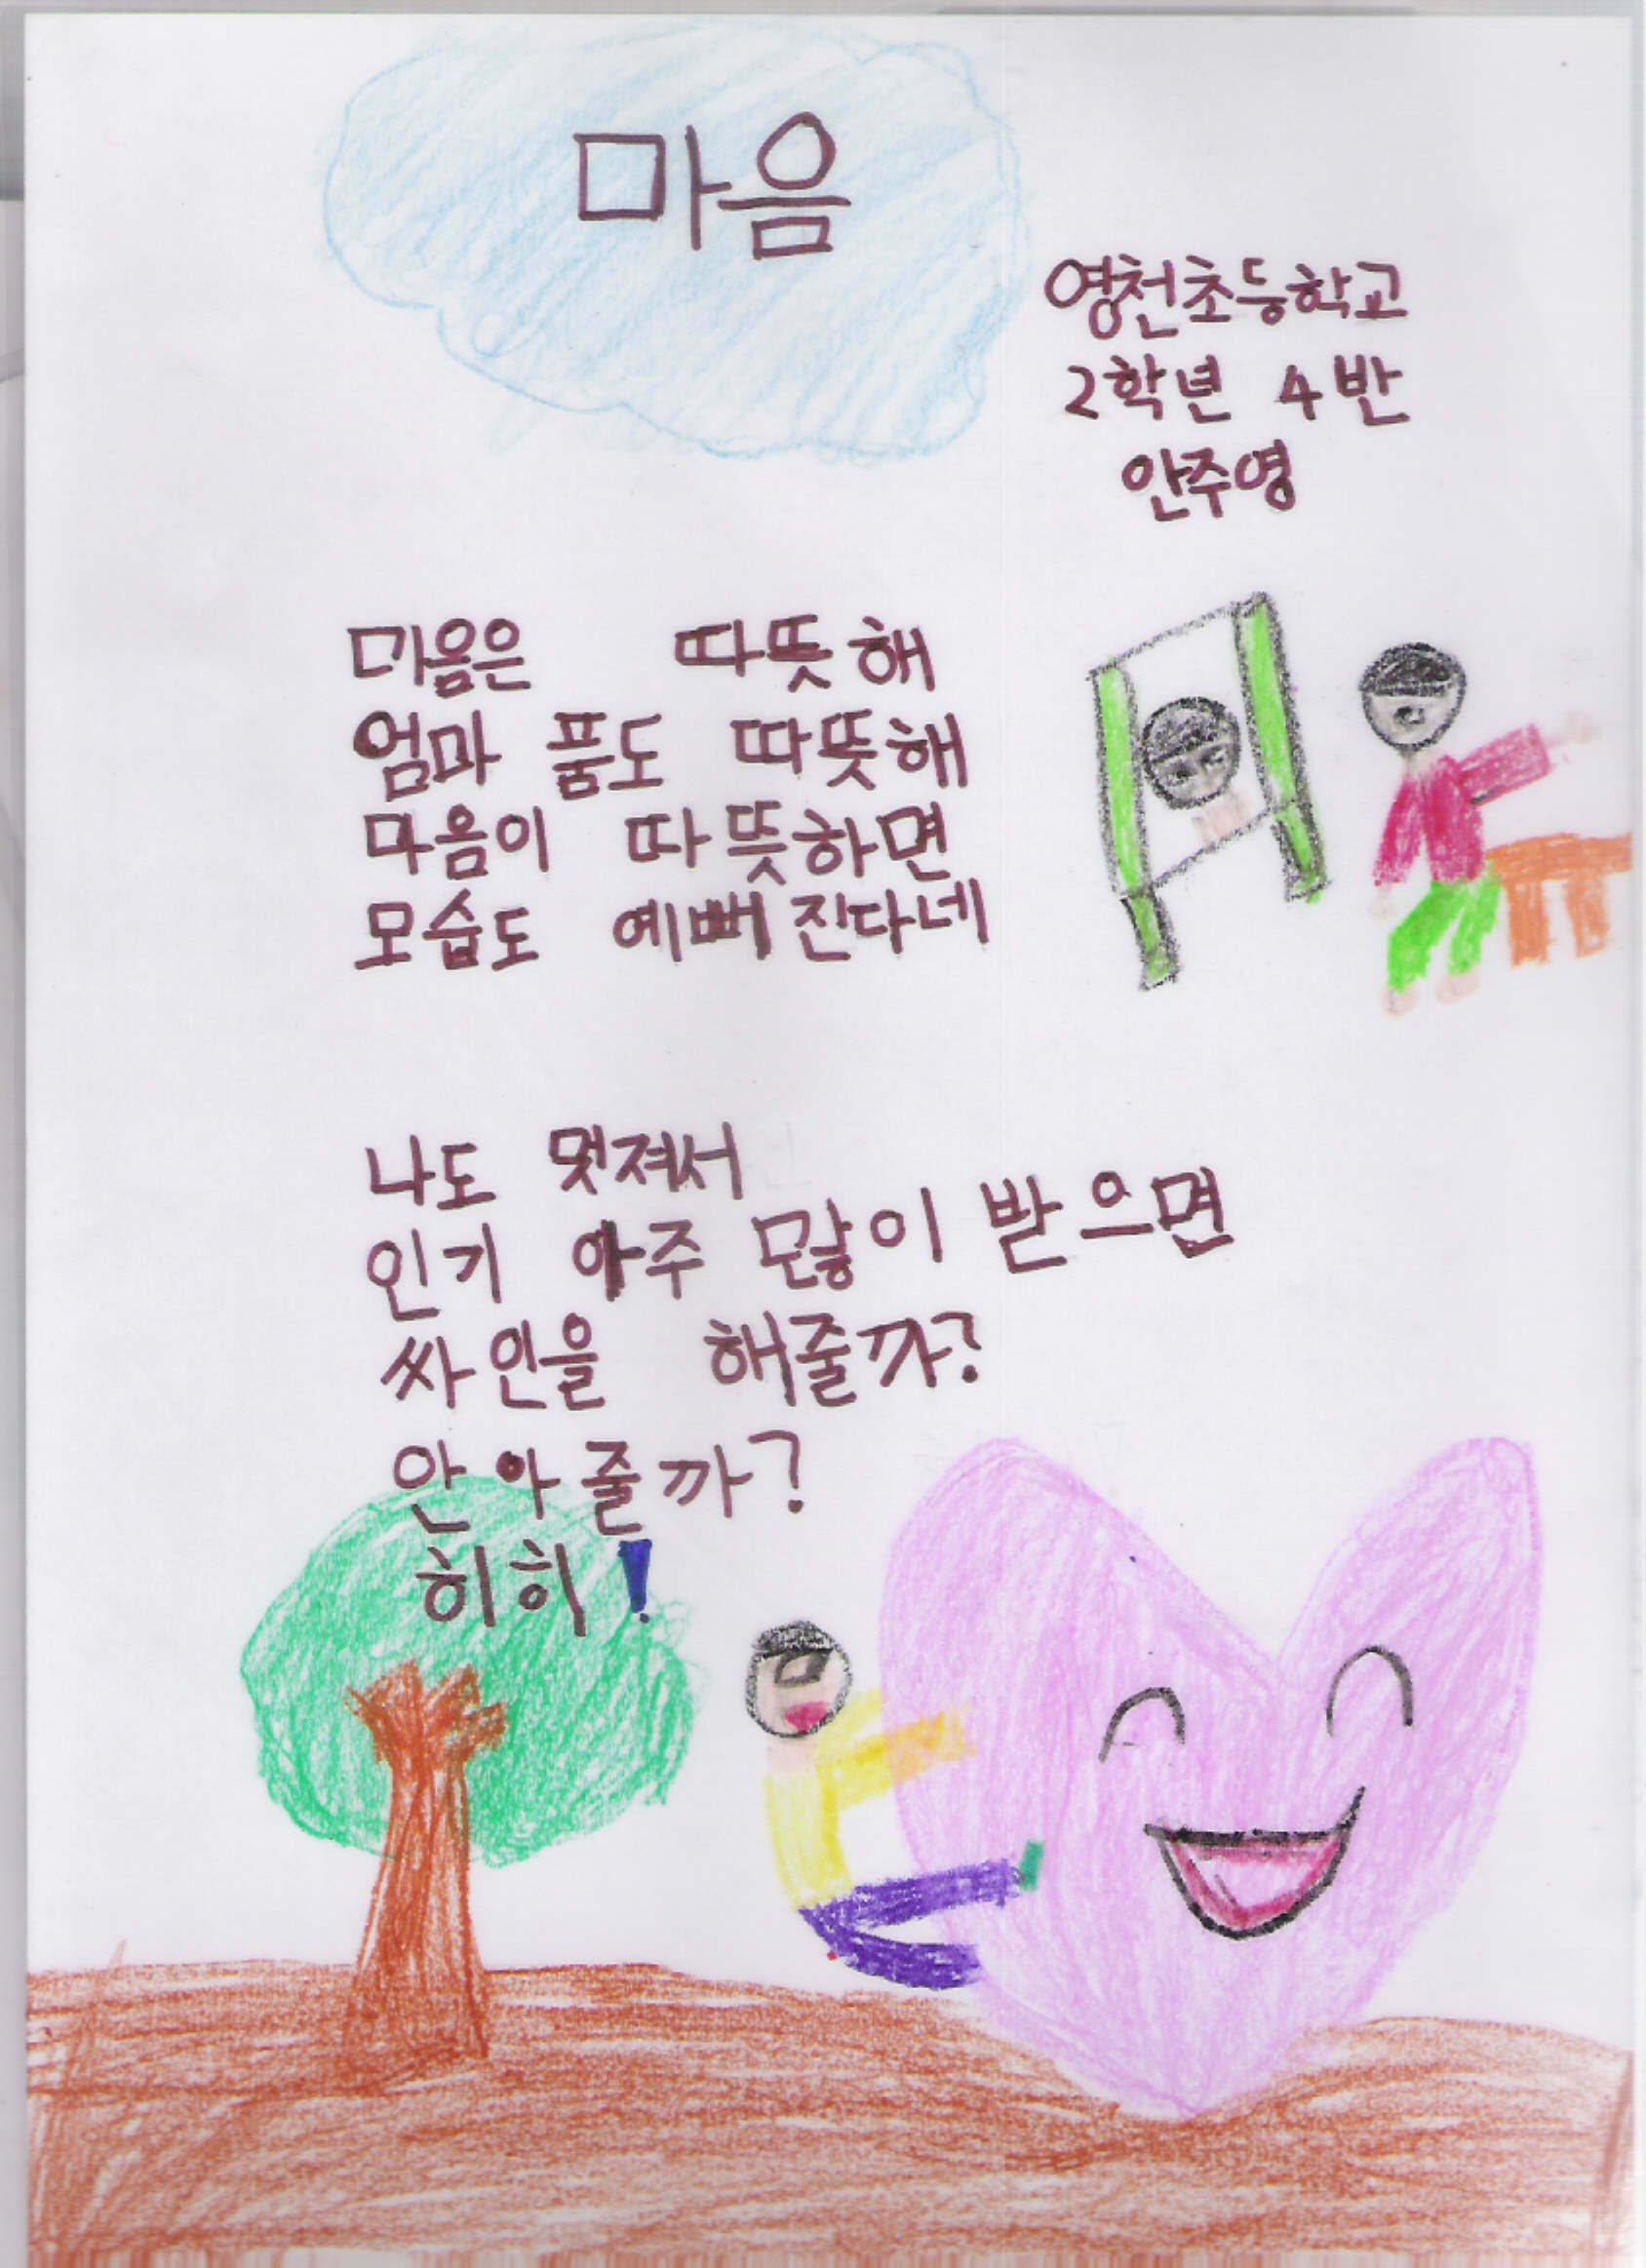 마음
영천초등학교
2학년 4반
안주영
마음은 따뜻해
엄마 품도 따뜻해
마음이 따뜻하면
모습도 예뻐진다네
나도 멋져서
인기 아주 많이 받으면
싸인을 해줄까?
안아줄까?
히히!